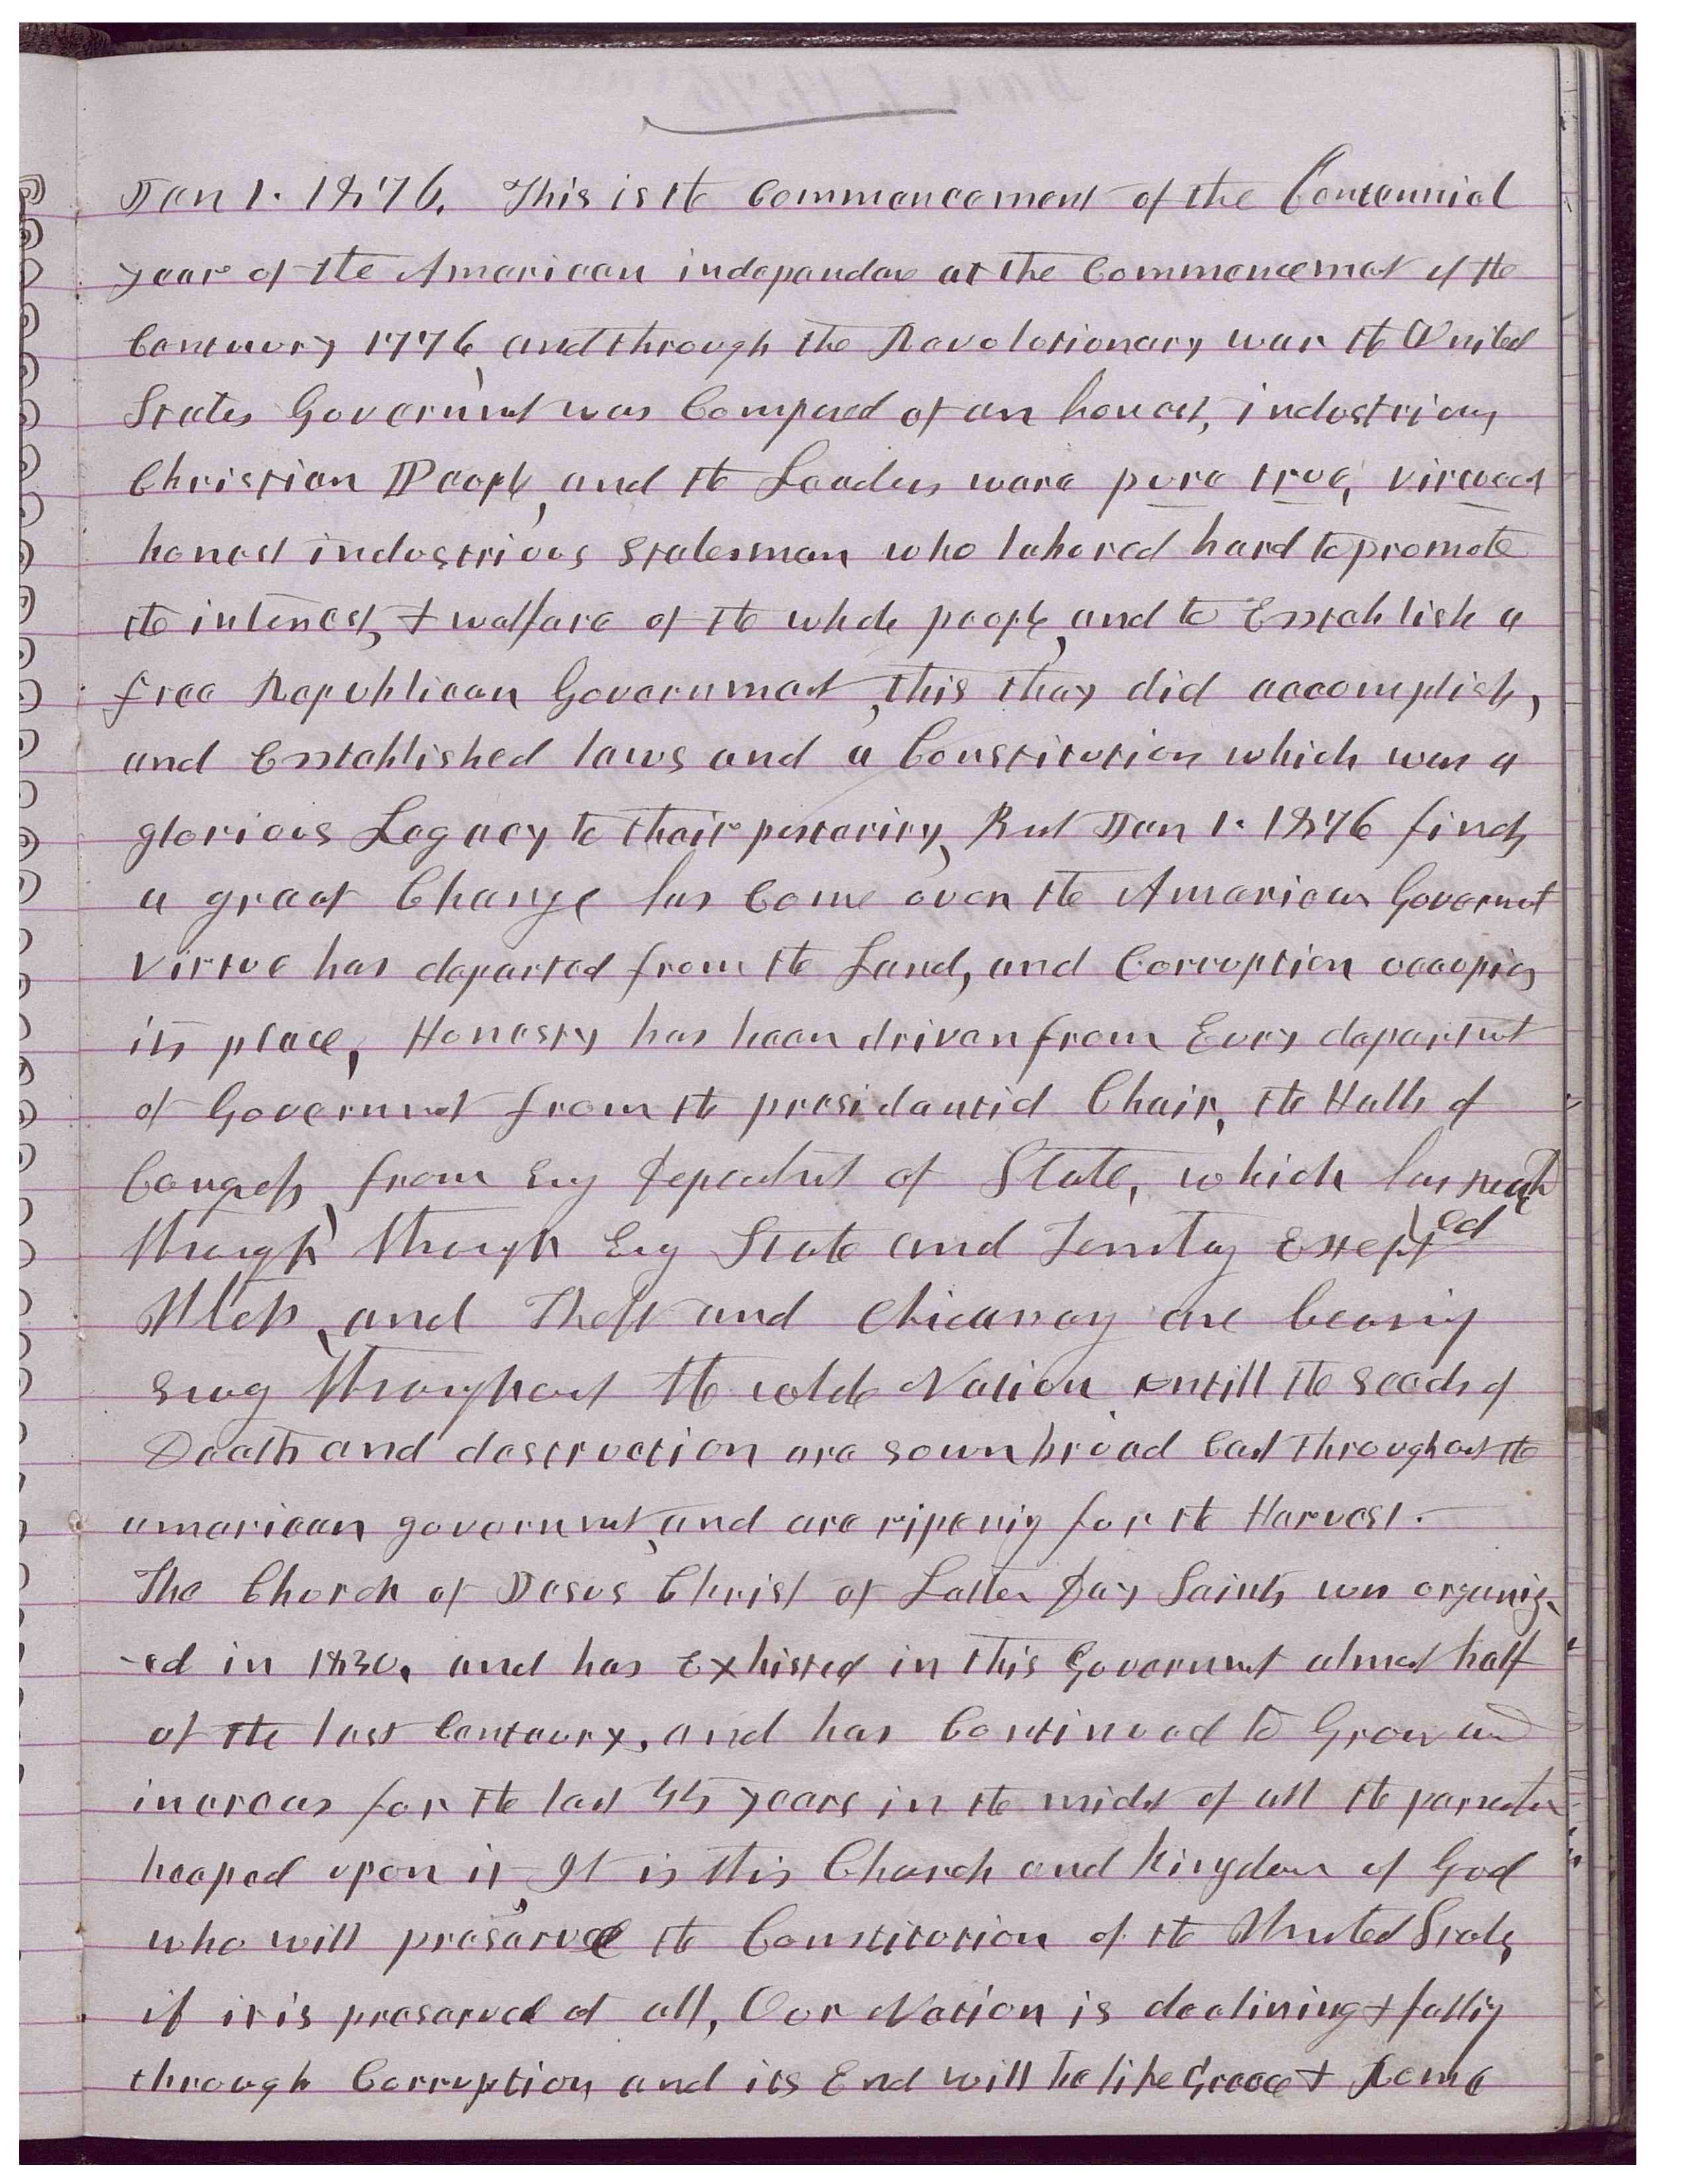 Jan 1. 1876. This is the Commencement of the Centennial
year of the American independance at the Commencement of the
Centuury 1776, and through the Revolotionary war the United
States Government was Composed of an honest, industrious
Christian People, and the Leaders ware pure true, virtuous
honest industrious statesman who labored hard to promote
the interest, & walfare of the whole people, and to Esstablish a
free Republican Government, this thay did accomplish,
and Esstablished laws and a Constitution which was a
glorious Legacy to thair posterity, But Jan 1. 1876 finds
a great Change has Come over the American Government
Virtue has departed from the Land, and Corruption occopies
its place, Honesty has been driven from Evry department
of Government from the presidential Chair, the Halls of
Congress, from Evry department of State, which has reach
through through Evry State and Territory Excepted
and Theft and Chicanery are bearing
sway throughout the whole Nation untill the seeds of
Death and destruction are sown broad Cast throughout the
american government, and are ripening for the Harvest.
The Church of Jesus Christ of Latter Day Saints was organiz-
-ed in 1830, and has Exhisted in this Government almost half
of the last Century, and has Continued to Grow and
increas for the last 45 years in the midst of all the persecution
heaped upon it, It is this Church and Kingdom of God
who will preserve the Constitution of the United States
if it is preserved at all, Our Nation is declining & falling
through Corruption and its End will be like Greece & Rome